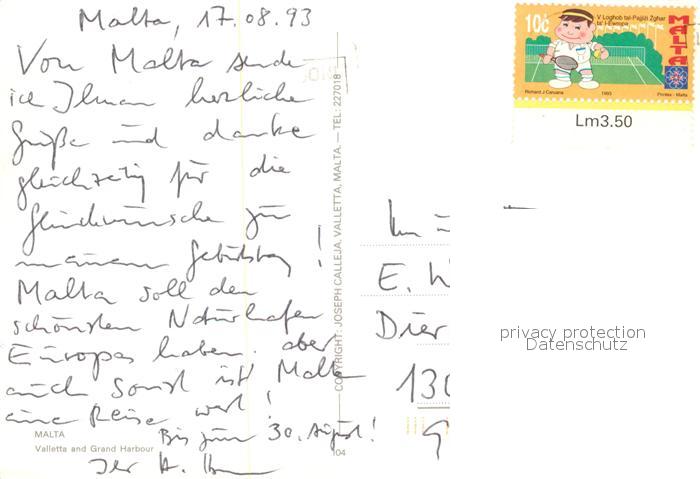 Malta, 17.08.93
Von Malta sende
ich Ihnen herzliche
Grüße und danke
gleichzeitig für die
Glückwünsche zu
meinem Geburtstag!
Malta soll den
schönsten Naturhafen
Europas haben. aber
auch sonst ist Malta
eine Reise wert!
Bis zum 30. August!
Ihr H.
MALTA
Valletta and Grand Harbour
COPYRIGHT: JOSEPH CALLEJA, VALLETTA, MALTA. — TEL: 227018
104
E. W
Dier
130
10c
V Logħob tal-Pajjiżi Żgħar
ta' l-Ewropa
MALTA
Richard J Caruana
1993
Printex - Malta
Lm3.50
privacy protection
Datenschutz